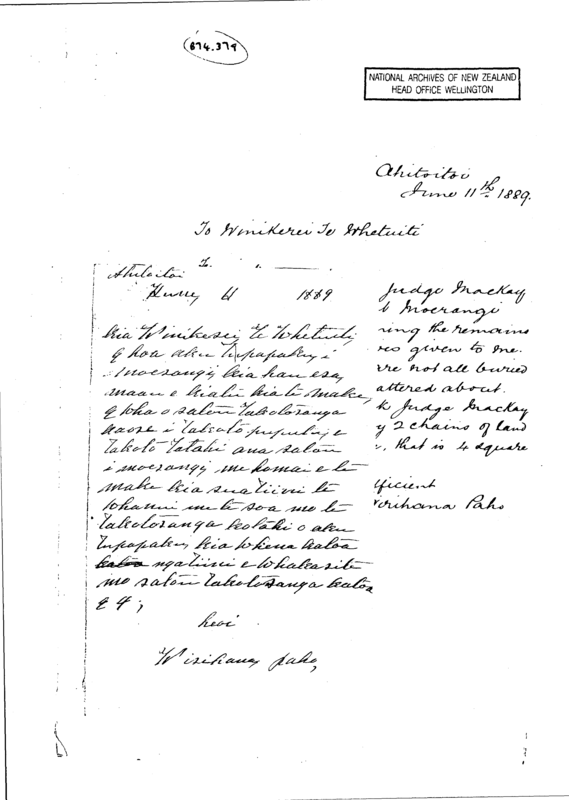 874.379
NATIONAL ARCHIVES OF NEW ZEALAND
HEAD OFFICE WELLINGTON
Ahitoitoi
June 11th 1889.
To Winikerei Te Whetuiti
Ahitoitoi
Hune 11 1889
Kia Winikerei Te Whetuiti
e hoa aku Tupapaku i
Moerangi kia hau era
maau e kiatu kia te Make
e wha o ratou takotoranga
kaore i takoto
takoto tatahi ana ratou
i moerangi me homai e te
make kia rua tiini te
whanui me te roa mo te
takotoranga kotahi o aku
Tupapaku kia whena katoa
katoa nga tiini e whakarite
mo ratou takotoranga katoa
e 4,
heoi
Wirihana paho,
Judge Mackay
Moerangi
ring the remains
res given to me.
ere not all buried
attered about.
k Judge Mackay
y 2 chains of land
, that is 4 square
fficient
Wirihana Paho